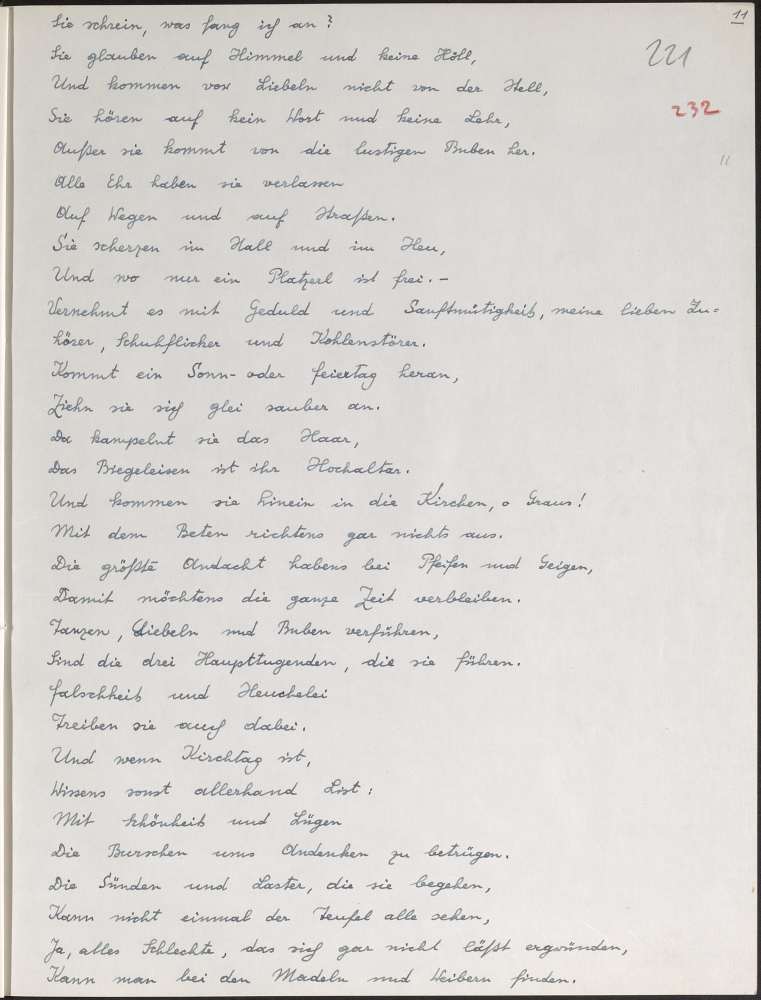 11
Sie schrein, was fang ich an?
Sie glauben auf Himmel und keine Höll,
221
Und kommen vor Liebeln nicht von der Stell,
232
Sie hören auf kein Wort und keine Lehr,
Außer sie kommt von die lustigen Buben her.
11
Alle Ehr haben sie verlassen
Auf Wegen und auf Straßen.
Sie scherzen im Stall und im Heu,
Und wo nur ein Platzerl ist frei. –
Vernehmt es mit Geduld und Sanftmütigkeit, meine lieben Zu=
hörer, Schuhflicker und Kohlenstörer.
Kommt ein Sonn- oder Feiertag heran,
Ziehn sie sich glei sauber an.
Da kampelnt sie das Haar,
Das Biegeleisen ist ihr Hochaltar.
Und kommen sie hinein in die Kirchen, o Graus!
Mit dem Beten richtens gar nichts aus.
Die größte Andacht habens bei Pfeifen und Geigen,
Damit möchtens die ganze Zeit verbleiben.
Tanzen, Liebeln und Buben verführen,
Sind die drei Haupttugenden, die sie führen.
Falschheit und Heuchelei
Treiben sie auch dabei.
Und wenn Kirchtag ist,
Wissens sonst allerhand List:
Mit Schönheit und Lügen
Die Burschen ums Andenken zu betrügen.
Die Sünden und Laster, die sie begehen,
Kann nicht einmal der Teufel alle sehen,
Ja, alles Schlechte, das sich gar nicht läßt ergründen,
Kann man bei den Madeln und Weibern finden.